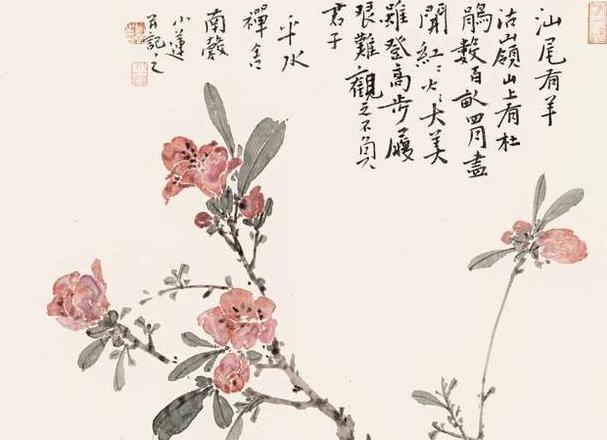 汕尾有羊
沽嶺山上有杜
鵑數百畝四月盡
開紅〻火〻大美
雖登高步履
艱難觀之不負
君子
禪舍
南
小蓮
并記之